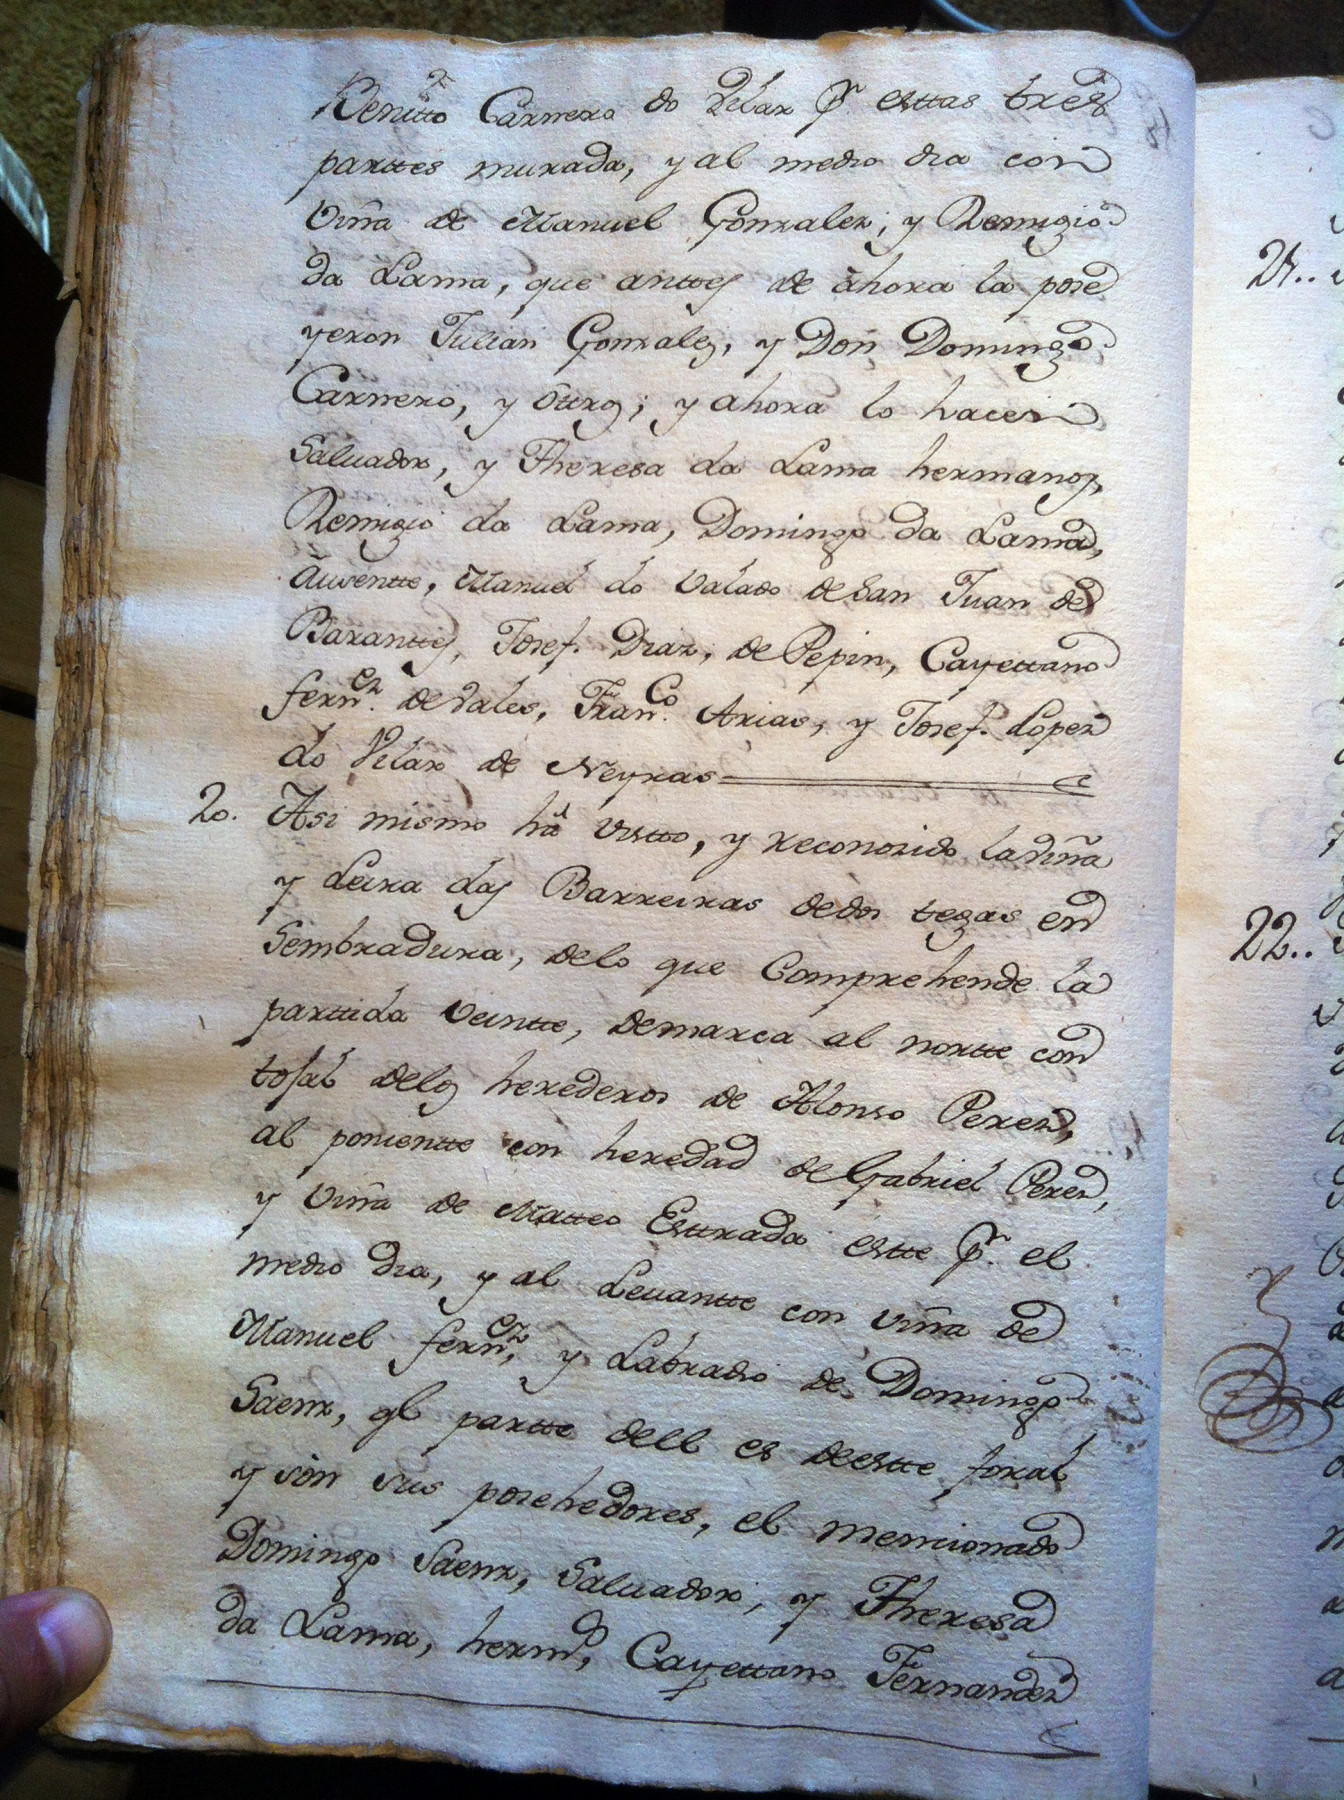 Benitto Carnero do Vilar pr. esttas tres
parttes murada, y al medio dia con
Viña de Manuel Gonzalez; y Remigio
da Lama, que anttes de ahora la pose
yeron Julian Gonzales, y Don Domingo
Carnero, y ottros; y ahora lo hacen
Salvador, y Theresa da Lama hermanos,
Remigio da Lama, Domingo da Lama,
Ausentte, Manuel do Valado de San Juan de
Baranttes, Josef. Diaz, de Pepin, Cayettano
fernez. de Vales, Franco. Arias, y Josef. Lopez
do Vilar de Neyras
20. Asi mismo ha Vistto, y reconosido la Viña
y Leira das Barreiras de dos tegas en
Sembradura, de lo que Comprehende la
parttida Veintte, demarca al nortte con
tojal de los herederos de Alonso Perez,
al ponientte con heredad de Gabriel Perez,
y Viña de Matteo Esttrada estte pr. el
medio dia, y al Levantte con viña de
Manuel fernez, y Labradio de Domingo
Saenz, ql partte dell es de estte foral
y son sus posehedores, el mencionado
Domingo Saenz, Salvador, y Theresa
da Lama, hermos, Cayettano Fernandez
21..
22..